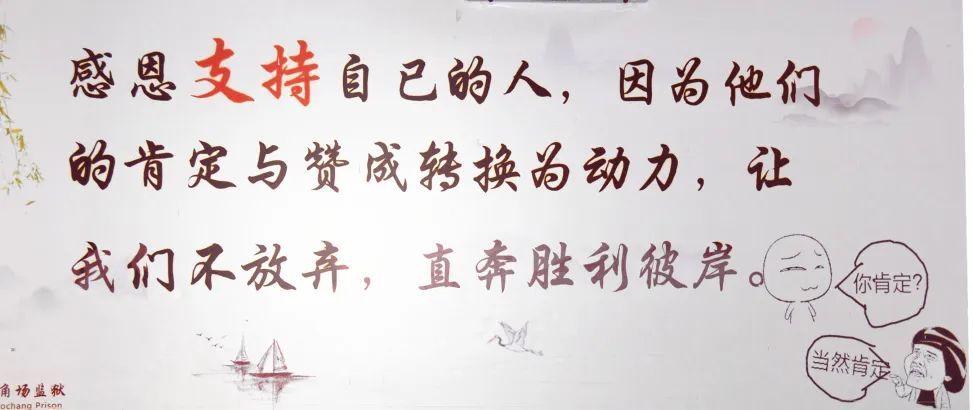 感恩支持自己的人，因为他们
的肯定与赞成转换为动力，让
我们不放弃，直奔胜利彼岸。
你肯定?
当然肯定
角场监狱
ochang Prison